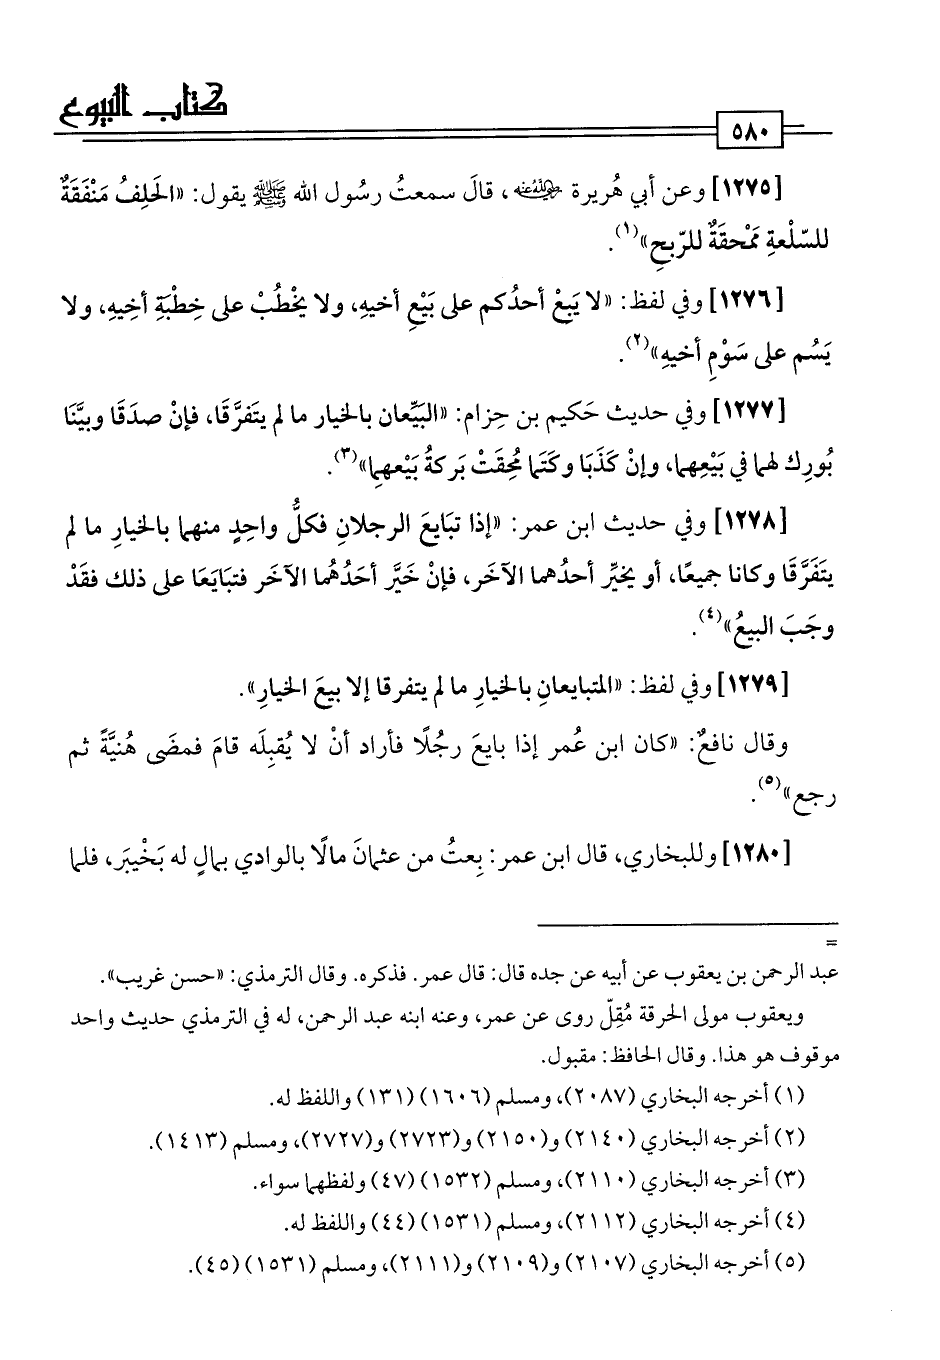 كتاب البيوع
٥٨٠
[١٢٧٥] وعن أبي هُريرة رضي الله عنه، قالَ سمعتُ رسُول الله ﷺ يقول: «الحَلِفُ مَنْفَقَةٌ
للسّلْعةِ مَمْحقَةٌ للرّبحِ»(١).
[١٢٧٦] وفي لفظ: «لا يَبعْ أحدُكم على بَيْعِ أخيهِ، ولا يخْطُبْ على خِطْبَةِ أخِيهِ، ولا
يَسُم على سَوْمِ أخيهِ»(٢).
[١٢٧٧] وفي حديث حَكيم بن حِزام: «البَيِّعان بالخيار ما لم يتَفرَّقَا، فإنْ صدَقَا وبيَّنَا
بُورِك لهما في بَيْعِهما، وإنْ كَذَبَا وكَتَما مُحِقَتْ بَركةُ بَيْعهما»(٣).
[١٢٧٨] وفي حديث ابن عمر: «إذا تبَايعَ الرجلانِ فكلُّ واحِدٍ منهما بالخيارِ ما لم
يتَفَرَّقَا وكانا جميعًا، أو يخيِّر أحدُهما الآخَر، فإنْ خَيَّر أحَدُهُما الآخَر فتبَايَعَا على ذلك فقَدْ
وجَبَ البيعُ»(٤).
[١٢٧٩] وفي لفظ: «المتبايعانِ بالخيارِ ما لم يتفرقا إلا بيعَ الخيارِ».
وقال نافعٌ: «كان ابن عُمر إذا بايعَ رجُلًا فأراد أنْ لا يُقبِلَه قامَ فمضَى هُنيَّةً ثم
رجع»(٥).
[١٢٨٠] وللبخاري، قال ابن عمر: بِعتُ من عثمانَ مالًا بالوادي بمالٍ له بخَيْبَر، فلما
=
عبد الرحمن بن يعقوب عن أبيه عن جده قال: قال عمر. فذكره. وقال الترمذي: «حسن غريب».
ويعقوب مولى الحرقة مُقِلّ روى عن عمر، وعنه ابنه عبد الرحمن، له في الترمذي حديث واحد
موقوف هو هذا. وقال الحافظ: مقبول.
(١) أخرجه البخاري (٢٠٨٧)، ومسلم (١٦٠٦) (١٣١) واللفظ له.
(٢) أخرجه البخاري (٢١٤٠) و(٢١٥٠) و(٢٧٢٣) و(٢٧٢٧)، ومسلم (١٤١٣).
(٣) أخرجه البخاري (٢١١٠)، ومسلم (١٥٣٢) (٤٧) ولفظهما سواء.
(٤) أخرجه البخاري (٢١١٢)، ومسلم (١٥٣١) (٤٤) واللفظ له.
(٥) أخرجه البخاري (٢١٠٧) و(٢١٠٩) و(٢١١١)، ومسلم (١٥٣١) (٤٥).